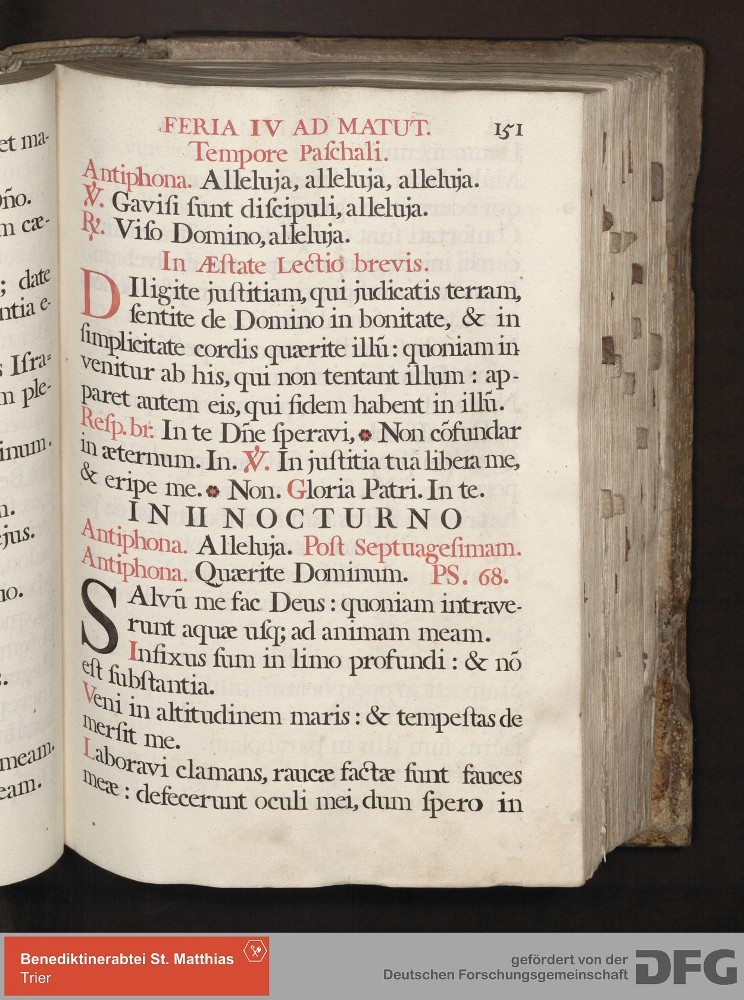 et ma-
Dño.
m cæ-
; date
ntia e-
s Iſra=
m ple-
inum.
n.
ejus.
no.
meam.
eam.
FERIA IV AD MATUT. 151
Tempore Paſchali.
Antiphona. Alleluja, alleluja, alleluja.
℣. Gaviſi ſunt diſcipuli, alleluja.
℟. Viſo Domino, alleluja.
In Æſtate Lectio brevis.
DIligite juſtitiam, qui judicatis terram,
ſentite de Domino in bonitate, & in
ſimplicitate cordis quærite illũ: quoniam in
venitur ab his, qui non tentant illum: ap-
paret autem eis, qui fidem habent in illũ.
Reſp. br. In te Dñe ſperavi, * Non cõfundar
in æternum. In. ℣. In juſtitia tua libera me,
& eripe me. * Non. Gloria Patri. In te.
IN II NOCTURNO
Antiphona. Alleluja. Poſt Septuageſimam.
Antiphona. Quærite Dominum. PS. 68.
SAlvũ me fac Deus: quoniam intrave-
runt aquæ uſq; ad animam meam.
Infixus ſum in limo profundi: & nõ
eſt ſubſtantia.
Veni in altitudinem maris: & tempeſtas de
merſit me.
Laboravi clamans, raucæ factæ ſunt fauces
meæ: defecerunt oculi mei, dum ſpero in
Benediktinerabtei St. Matthias
Trier
gefördert von der
Deutschen Forschungsgemeinschaft
DFG